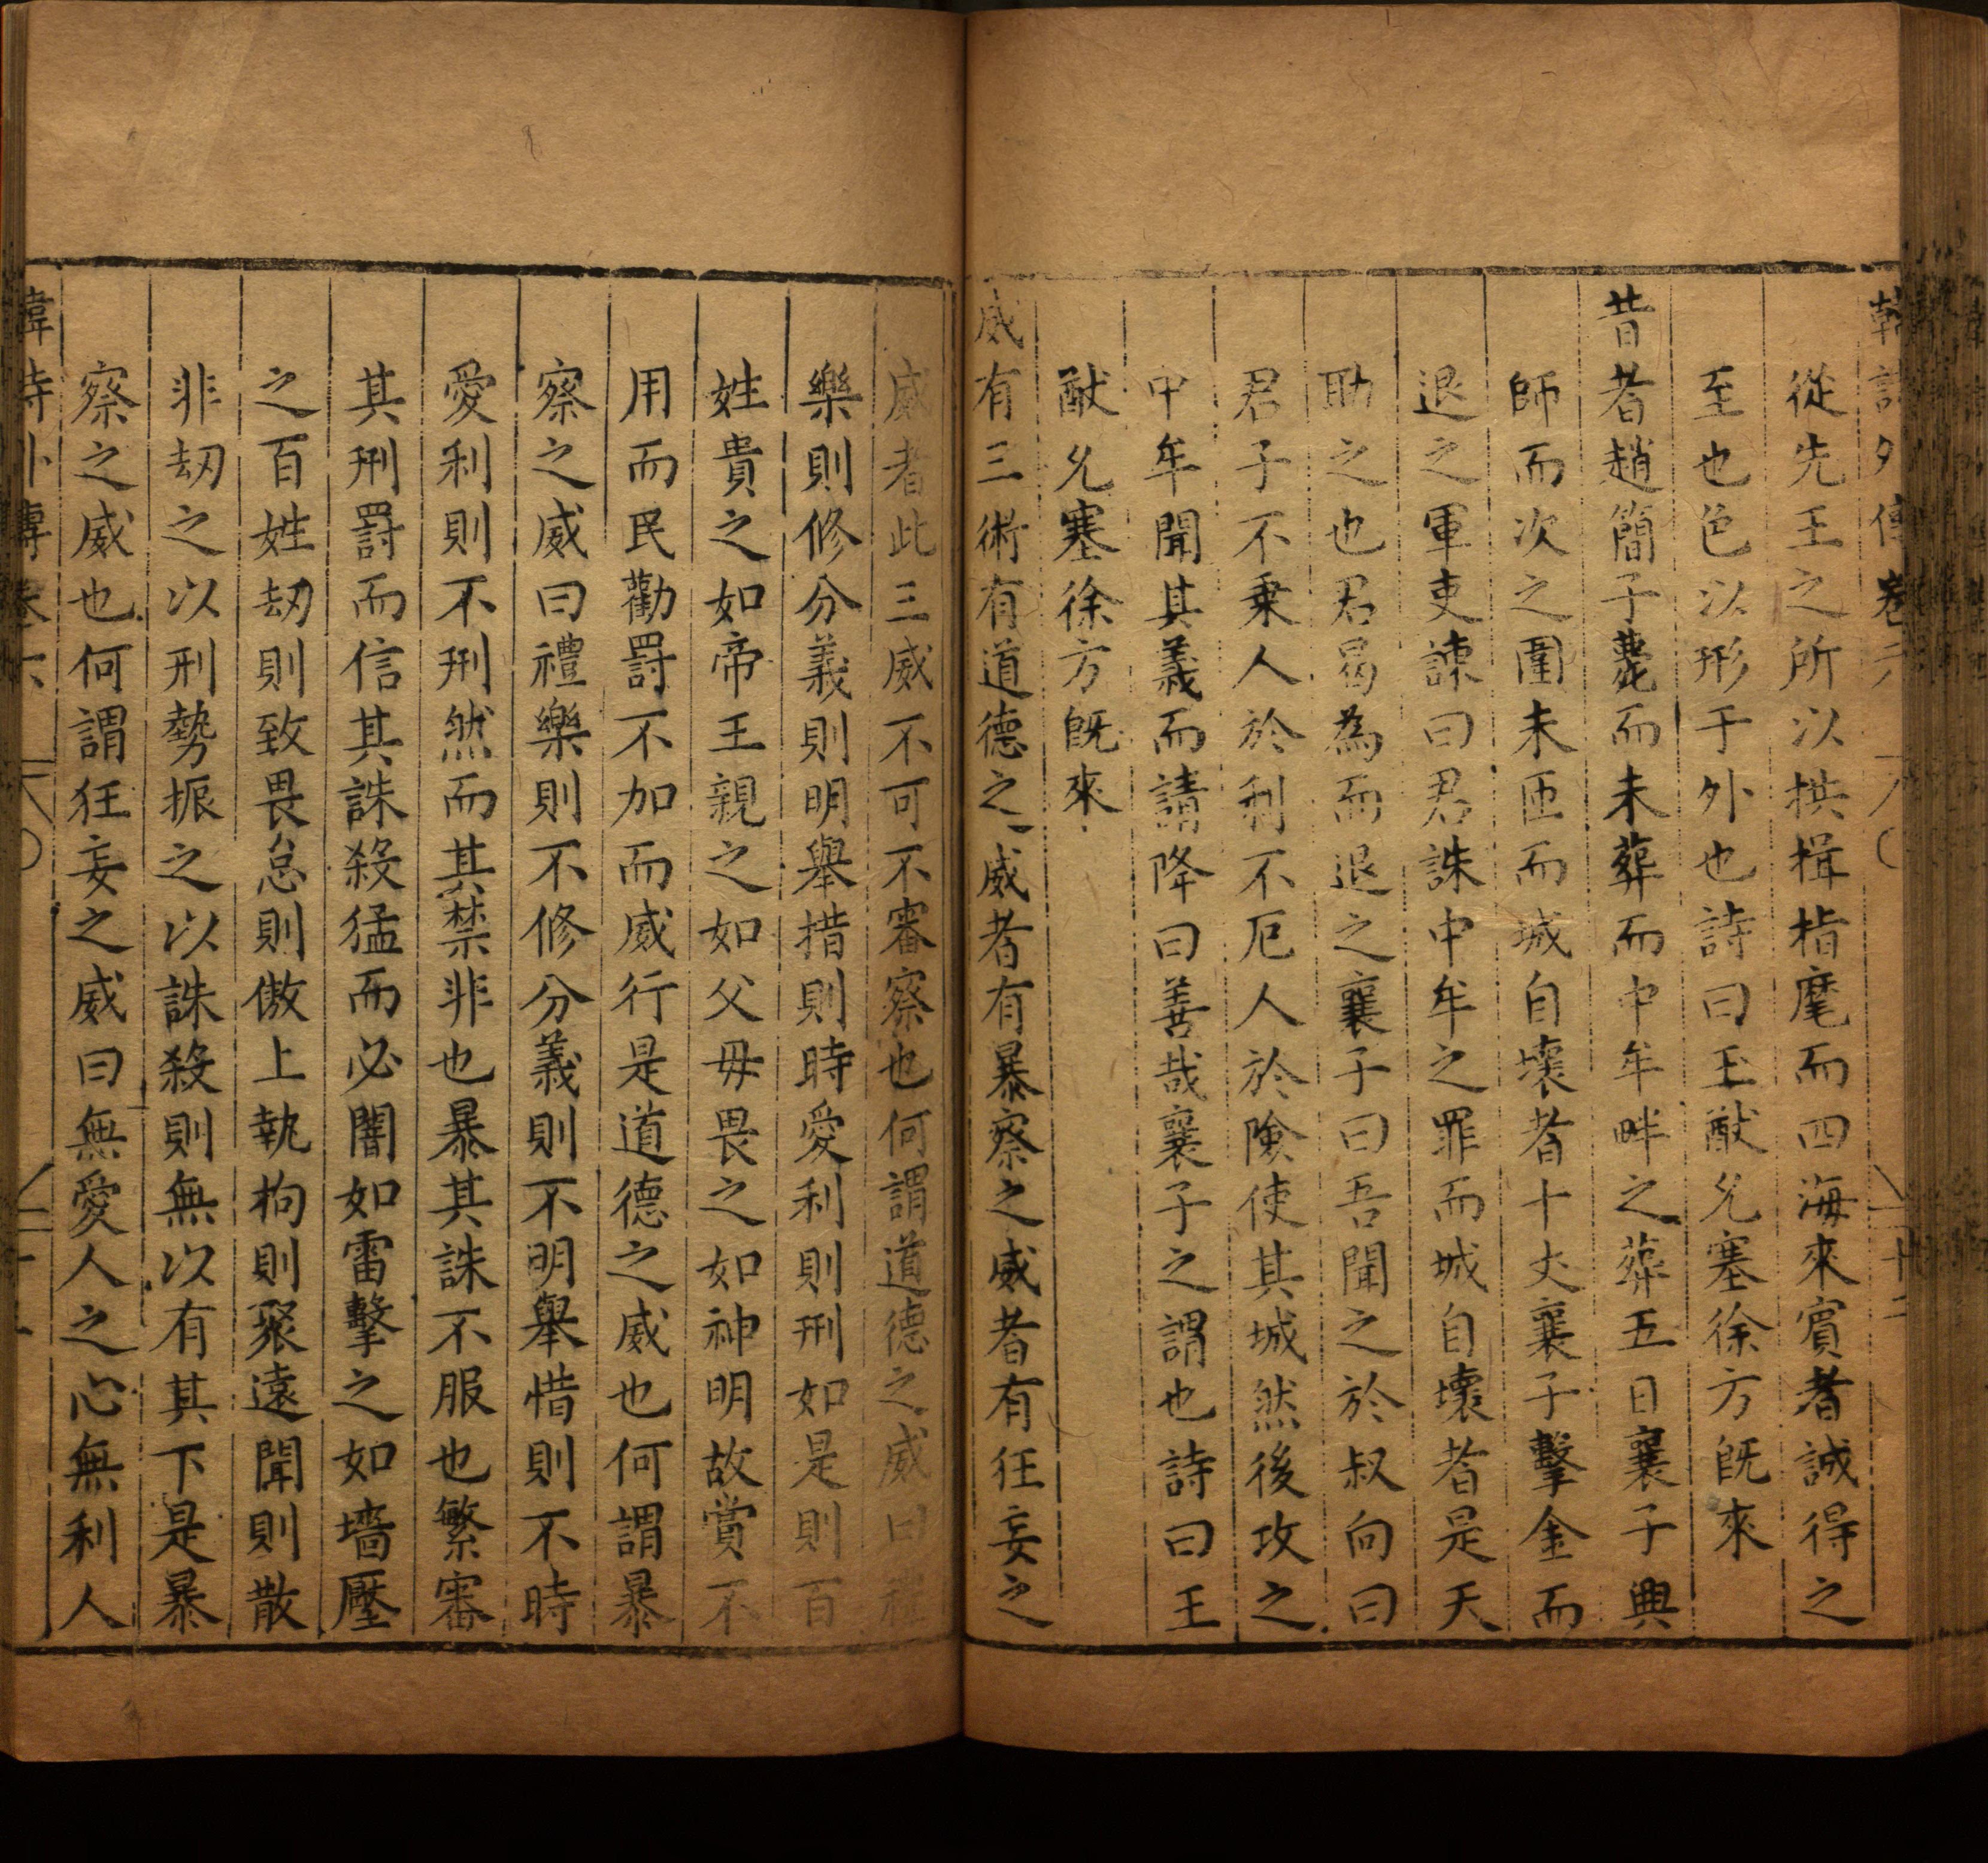 韓詩外傳卷六 十二
從先王之所以拱揖指麾而四海來賓者誠得之
至也色以形于外也詩曰王猷允塞徐方旣來
昔者趙簡子薨而未葬而中牟畔之葬五日襄子興
師而次之圍未匝而城自壞者十丈襄子擊金而
退之軍吏諫曰君誅中牟之罪而城自壞者是天
助之也君曷為而退之襄子曰吾聞之於叔向曰
君子不乗人於利不厄人於險使其城然後攻之
中牟聞其義而請降曰善哉襄子之謂也詩曰王
猷允塞徐方旣來
威有三術有道德之威者有暴察之威者有狂妄之
威者此三威不可不審察也何謂道德之威曰禮
樂則修分義則明舉措則時愛利則刑如是則百
姓貴之如帝王親之如父毋畏之如神明故賞不
用而民勸罰不加而威行是道德之威也何謂暴
察之威曰禮樂則不修分義則不明舉惜則不時
愛利則不刑然而其禁非也暴其誅不服也繁審
其刑罰而信其誅殺猛而必闇如雷擊之如墻壓
之百姓刼則致畏怠則傲上執拘則聚遠聞則散
非刼之以刑勢振之以誅殺則無以有其下是暴
察之威也何謂狂妄之威曰無愛人之心無利人
韓詩外傳卷六